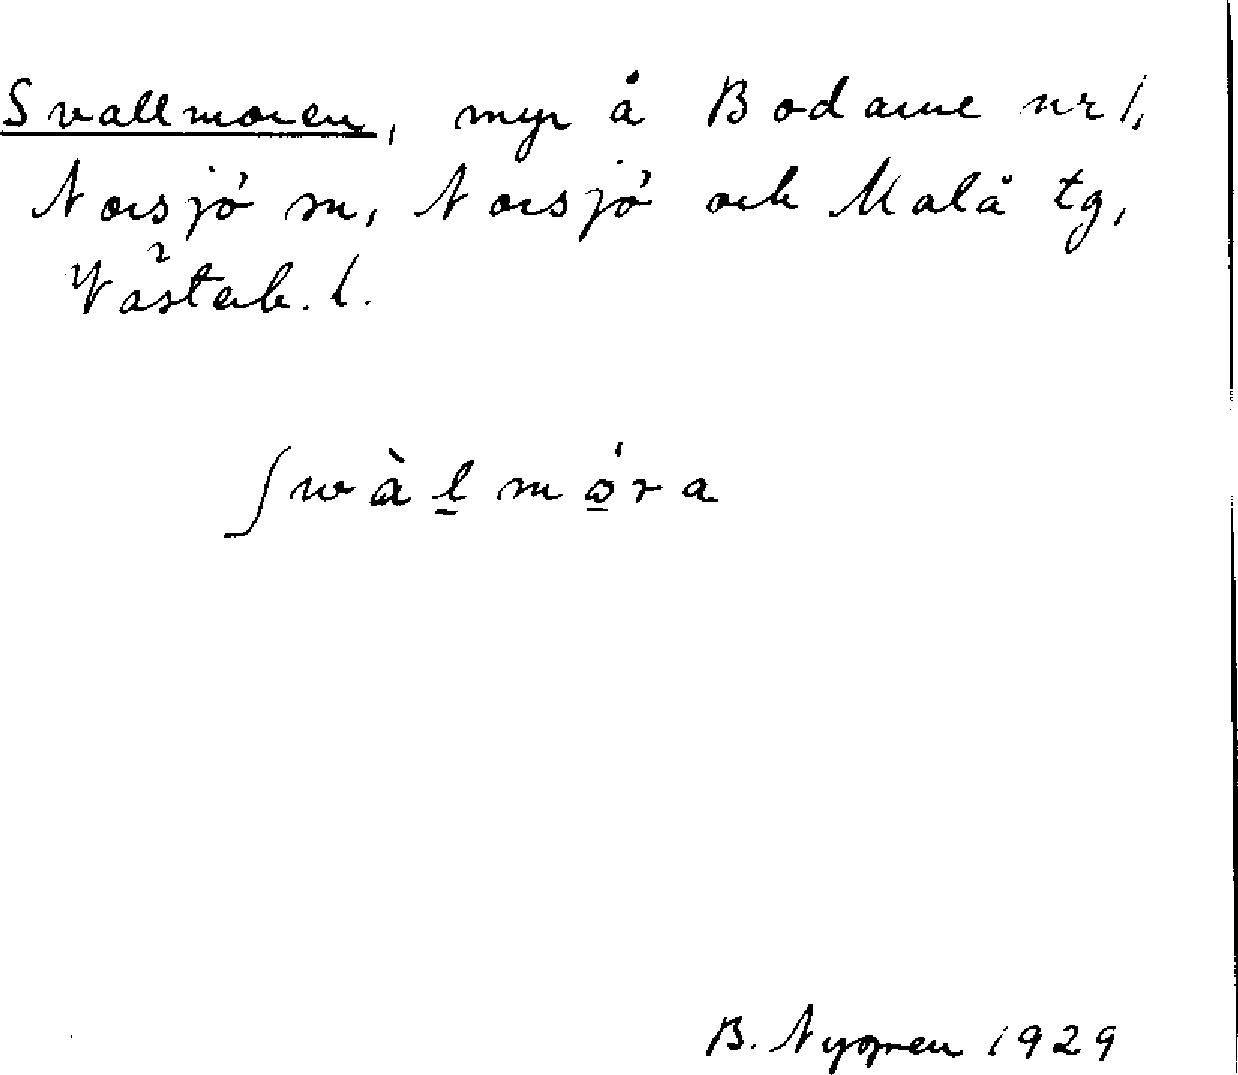 Svallmoren, myr å Bodarne nr 1,
Norsjö sn, Norsjö och Malå tg,
Västerb. l.
ʃwàl̠mo̠̒ra
B. Nygren 1929